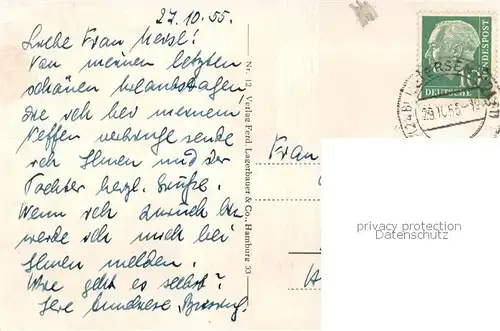 27.10.55.
Liebe Frau
Von meinen letzten
schönen
die ich bei meinem
Neffen verbringe sende
ich Ihnen und der
Tochter herzl. Grüße.
Wenn ich zurück bin
werde ich mich bei
Ihnen melden.
Wie geht es selbst?
Ihre
Nr. 12, Verlag Ferd. Lagerbauer & Co., Hamburg 33
Frau
DEUTSCHE BUNDESPOST
10
29.10.55
privacy protection
Datenschutz